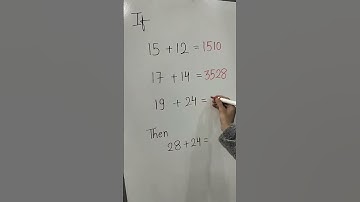 If
15 + 12 = 1510
17 + 14 = 3528
19 + 24 =
Then
28 + 24 =